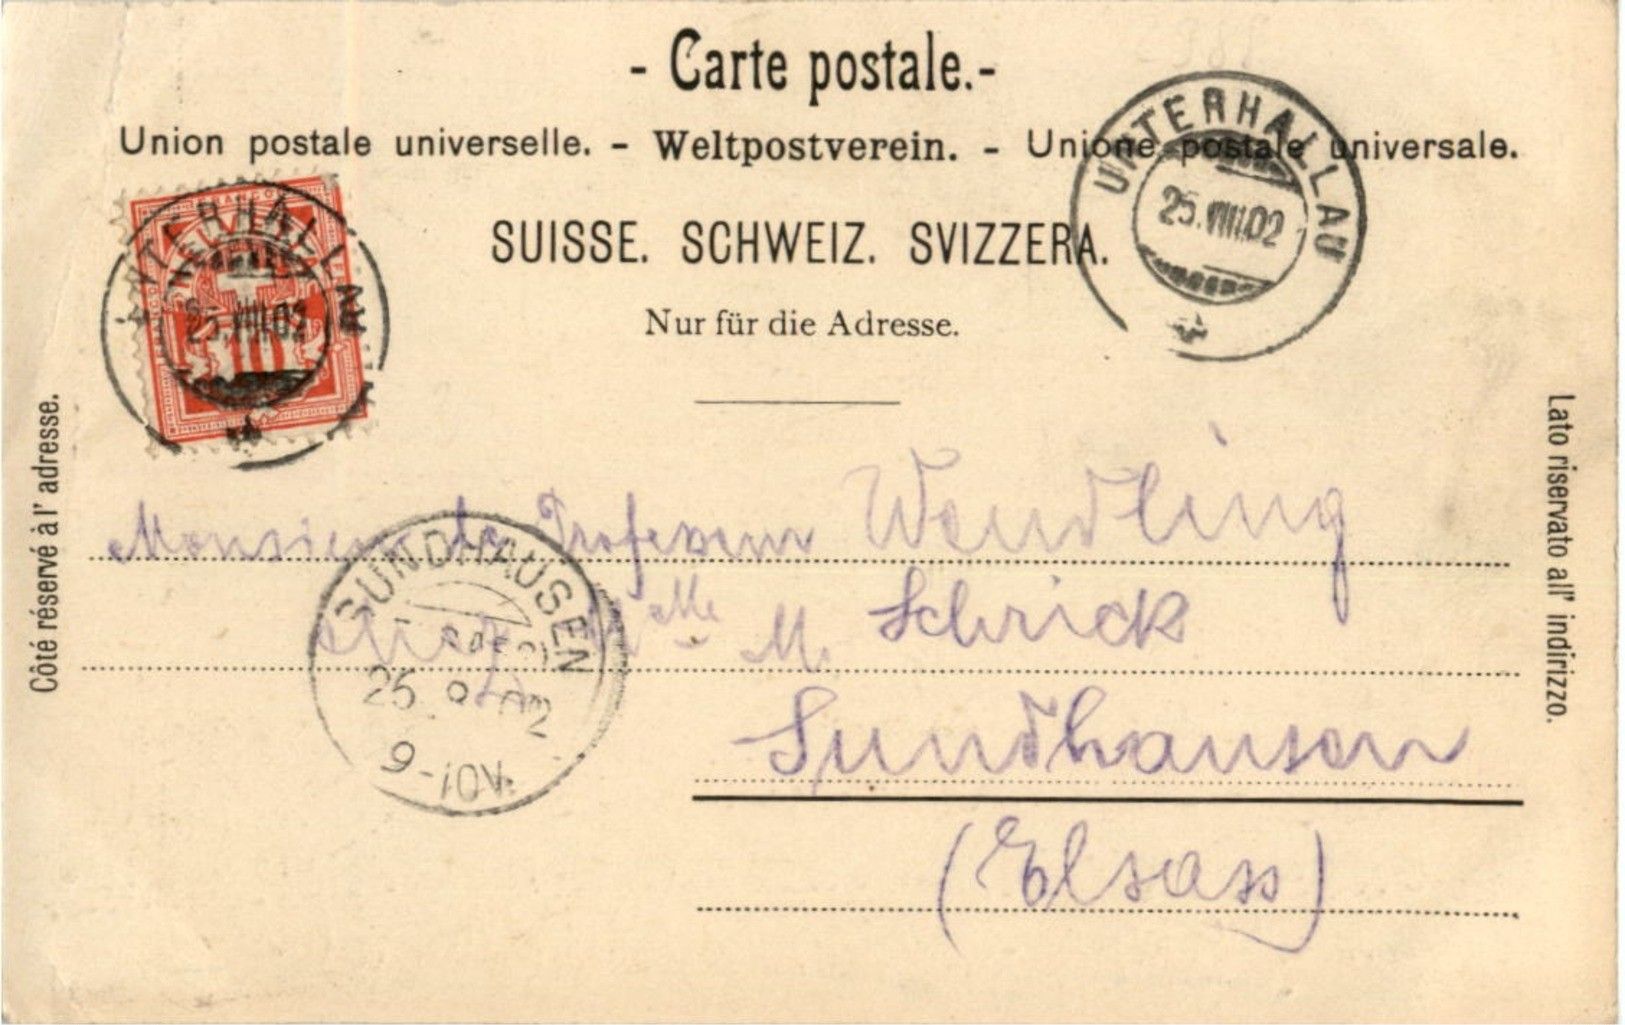 - Carte postale.-
Union postale universelle. - Weltpostverein. - Unione postale universale.
SUISSE. SCHWEIZ. SVIZZERA.
Nur für die Adresse.
UNTERHALLAU
25.VIII.02
UNTERHALLAU
25.VIII.02
HELVETIA
10
Côté réservé à l' adresse.
Lato riservato all' indirizzo.
Monsieur le Professeur Wendling
chez Mme M. Schrick
Sundhausen
(Elsass)
SUNDHAUSEN
25 8 02